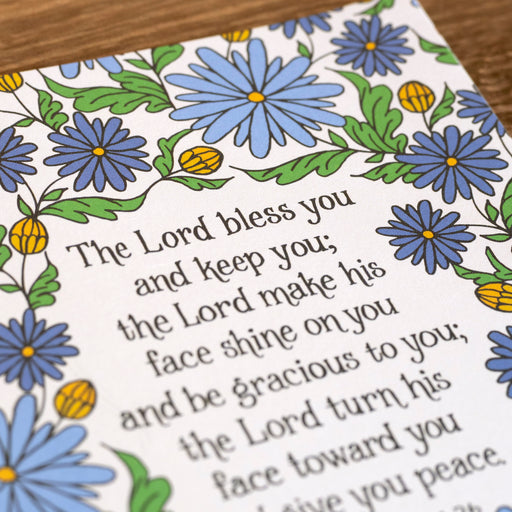 The Lord bless you
and keep you;
the Lord make his
face shine on you
and be gracious to you;
the Lord turn his
face toward you
give you peace.